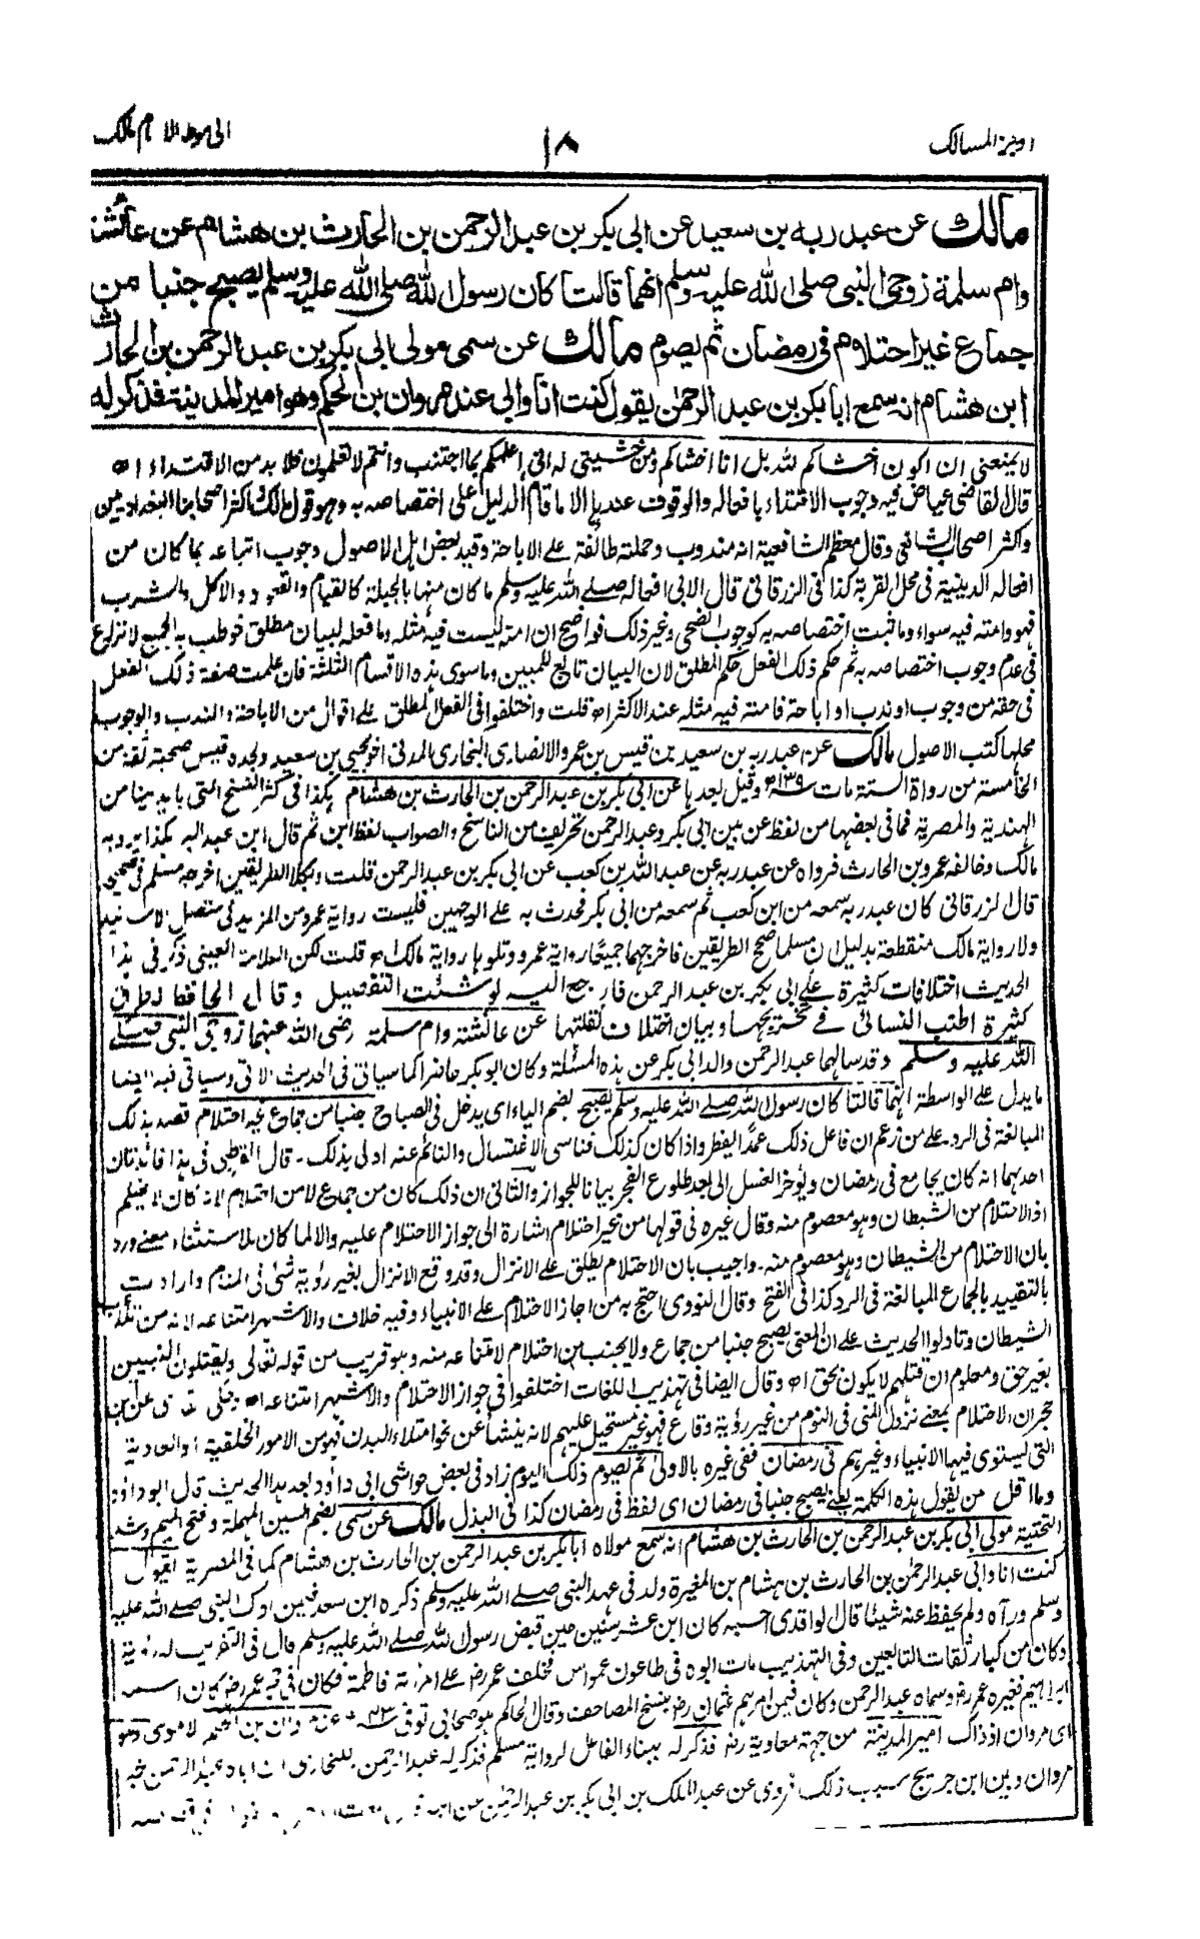 اوجز المسالك
١٨
الى موطا الامام مالك
مالك عن عبد ربه بن سعيد عن ابى بكر بن عبد الرحمن بن الحارث بن هشام عن عائشة
وام سلمة زوجى النبى صلى الله عليه وسلم انهما قالتا كان رسول الله صلى الله عليه وسلم يصبح جنبا من
جماع غير احتلام فى رمضان ثم يصوم مالك عن سمى مولى ابى بكر بن عبد الرحمن بن الحارث
ابن هشام انه سمع ابا بكر بن عبد الرحمن يقول كنت انا وابى عند مروان بن الحكم وهو امير المدينة فذكر له
لا يمنعنى ان اكون اخشاكم لله بل انا اخشاكم ومن خشيتى له انى اعلمكم بما اجتنب وانتم لا تعلمون فلا بد من الاقتداء اه
قال القاضى عياض فيه وجوب الاقتداء بافعاله والوقوف عندها الا ما قام الدليل على اختصاصه به وهو قول مالك واكثر اصحابنا البغداديين
واكثر اصحاب الشافعى وقال معظم الشافعية انه مندوب وحملته طائفة على الاباحة وقيد بعض اهل الاصول وجوب اتباعه بما كان من
افعاله الدينية فى محل القربة كذا فى الزرقانى قال الابى افعاله صلے الله عليه وسلم ما كان منها بالجبلة كالقيام والقعود والاكل والشرب
فهو وامته فيه سواء وما ثبت اختصاصه به كوجوب الضحى وغير ذلك فواضح ان امته ليست فيه مثله وما فعله لبيان مطلق خوطب به الجميع لا نزاع
فى عدم وجوب اختصاصه به ثم حكم ذلك الفعل حكم المطلق لان البيان تابع للمبين وما سوى هذه الاقسام الثلثة فان علمت صفة ذلك الفعل
فى حقه من وجوب او ندب او اباحة فامته فيه مثله عند الاكثر اه قلت واختلفوا فى الفعل المطلق على اقوال من الاباحة والندب والوجوب
محلها كتب الاصول مالك عن عبد ربه بن سعيد بن قيس بن عمرو الانصارى النجارى المدنى اخو يحيى بن سعيد ولجده قيس صحبة ثقة من
الخامسة من رواة الستة مات سنة ١٣٩ وقيل بعدها عن ابى بكر بن عبد الرحمن بن الحارث بن هشام هكذا فى اكثر النسخ التى بايدينا من
الهندية والمصرية فما فى بعضها من لفظ عن بين ابى بكر وعبد الرحمن تحريف من الناسخ والصواب لفظ ابن ثم قال ابن عبد البر هكذا يرويه
مالك وخالفه عمرو بن الحارث فرواه عن عبد ربه عن عبد الله بن كعب عن ابى بكر بن عبد الرحمن قلت وبكلا الطريقين اخرجه مسلم فى صحيحه
قال الزرقانى كان عبد ربه سمعه من ابن كعب ثم سمعه من ابى بكر فحدث به على الوجهين فليست رواية عمرو من المزيد فى متصل الاسانيد
ولا رواية مالك منقطعة بدليل ان مسلما صحح الطريقين فاخرجهما جميعا رواية عمرو وتلوها رواية مالك اه قلت لكن العلامة العينى ذكر فى هذا
الحديث اختلافات كثيرة على ابى بكر بن عبد الرحمن فارجع اليه لو شئت التفصيل وقال الحافظ له طرق
كثيرة اطنب النسائى فى تخريجها وبيان اختلاف نقلتها عن عائشة وام سلمة رضى الله عنهما زوجى النبى صلے
الله عليه وسلم وقد سالهما عبد الرحمن والد ابى بكر عن هذه المسئلة وكان ابو بكر حاضرا كما سياتى فى الحديث الاتى وسياتى فيه ايضا
ما يدل على الواسطة انهما قالتا كان رسول الله صلے الله عليه وسلم يصبح بضم الياء اى يدخل فى الصباح جنبا من جماع غير احتلام قصد بذلك
المبالغة فى الرد على من زعم ان فاعل ذلك عمدا يفطر واذا كان كذلك فناسى الاغتسال والنائم عنه اولى بذلك - قال القرطبى فى هذا فائدتان
احدهما انه كان يجامع فى رمضان ويؤخر الغسل الى بعد طلوع الفجر بيانا للجواز والثانى ان ذلك كان من جماع لا من احتلام لانه كان لا يحتلم
اذ الاحتلام من الشيطان وهو معصوم منه وقال غيره فى قولها من غير احتلام اشارة الى جواز الاحتلام عليه والا لما كان للاستثناء معنے ورد
بان الاحتلام من الشيطان وهو معصوم منه - واجيب بان الاحتلام يطلق على الانزال وقد وقع الانزال بغير رؤية شئ فى المنام وارادت
بالتقييد بالجماع المبالغة فى الرد كذا فى الفتح وقال النووى احتج به من اجاز الاحتلام على الانبياء وفيه خلاف والاشهر امتناعه لانه من تلاعب
الشيطان وتاولوا الحديث على ان المعنى يصبح جنبا من جماع ولا يجنب من احتلام لامتناعه منه وهو قريب من قوله تعالى ويقتلون النبيين
بغير حق ومعلوم ان قتلهم لا يكون بحق اه وقال ايضا فى تهذيب اللغات اختلفوا فى جواز الاحتلام والاشهر امتناعه اه
حجر ان الاحتلام بمعنے نزول المنى فى النوم من غير رؤية وقاع فهو غير مستحيل عليهم لانه ينشأ عن نحو امتلاء البدن فهو من الامور الخلقية والعادية
التى يستوى فيها الانبياء وغيرهم فى رمضان ففى غيره بالاولى ثم يصوم ذلك اليوم زاد فى بعض حواشى ابى داؤد بعد هذا الحديث قال ابو داؤد
وما اقل من يقول هذه الكلمة يعنے يصبح جنبا فى رمضان اى لفظ فى رمضان كذا فى البذل مالك عن سمى بضم السين المهملة وفتح الميم وشد
التحتية مولى ابى بكر بن عبد الرحمن بن الحارث بن هشام انه سمع مولاه ابا بكر بن عبد الرحمن بن الحارث بن هشام كما فى المصرية يقول
كنت انا وابى عبد الرحمن بن الحارث بن هشام بن المغيرة ولد فى عهد النبى صلے الله عليه وسلم ذكره ابن سعد فيمن ادرك النبى صلے الله عليه
وسلم ورآه ولم يحفظ عنه شيئا قال الواقدى احسبه كان ابن عشر سنين حين قبض رسول الله صلے الله عليه وسلم قال فى التقريب له رؤية
وكان من كبار ثقات التابعين وفى التهذيب مات ابوه فى طاعون عمواس فخلف عمر رض على امرأته فاطمة فكان فى حجر عمر رض كان اسمه
ابراهيم فغيره عمر رض وسماه عبد الرحمن وكان فيمن امرهم عثمان رض بنسخ المصاحف وقال الحاكم هو صحابى توفى
اى مروان اذ ذاك امير المدينة من جهة معاوية رض فذكر له ببناء الفاعل لرواية مسلم فذكر له عبد الرحمن
مروان وبين ابن جريج سبب ذلك فروى عن عبد الملك بن ابى بكر بن عبد الرحمن عن ابيه